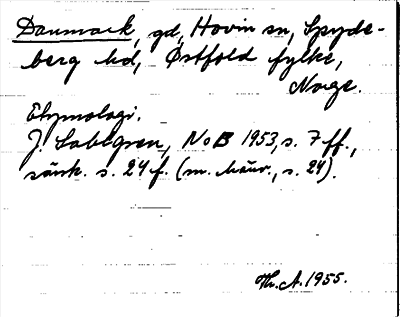 Danmark, gd, Hovin sn, Spyde-
berg hd, Østfold fylke,
Norge.
Etymologi.
J. Sahlgren, NoB 1953, s. 7 ff.,
särsk. s. 24 f. (m. hänv., s. 24).
Th. A. 1955.